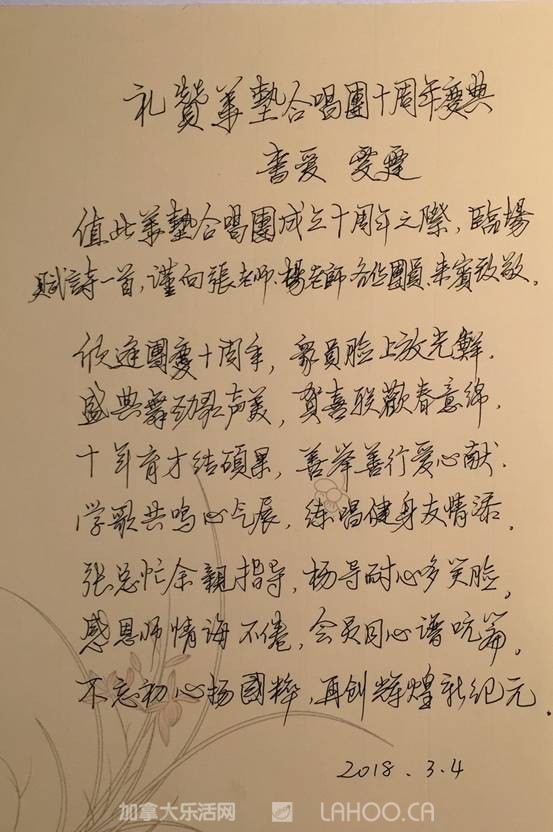 礼賛華埶合唱團十周年慶典
書爱 雯霆
值此華埶合唱團成立十周年之際,臨場
賦詩一首,谨向張老师、楊老師各位團員、来賓致敬。
欣逢團慶十周年,衆員脸上放光鮮.
盛典舞动歌声美,賀喜联歡春意绵.
十年育才结碩果,善举善行爱心献.
学歌共鸣心气展,练唱健身友情添.
张总忙余親指导,杨导耐心多笑脸,
感恩师情诲不倦,会员同心谱吭篇,
不忘初心扬國粹,再创辉煌新纪元.
2018.3.4
加拿大乐活网 LAHOO.CA